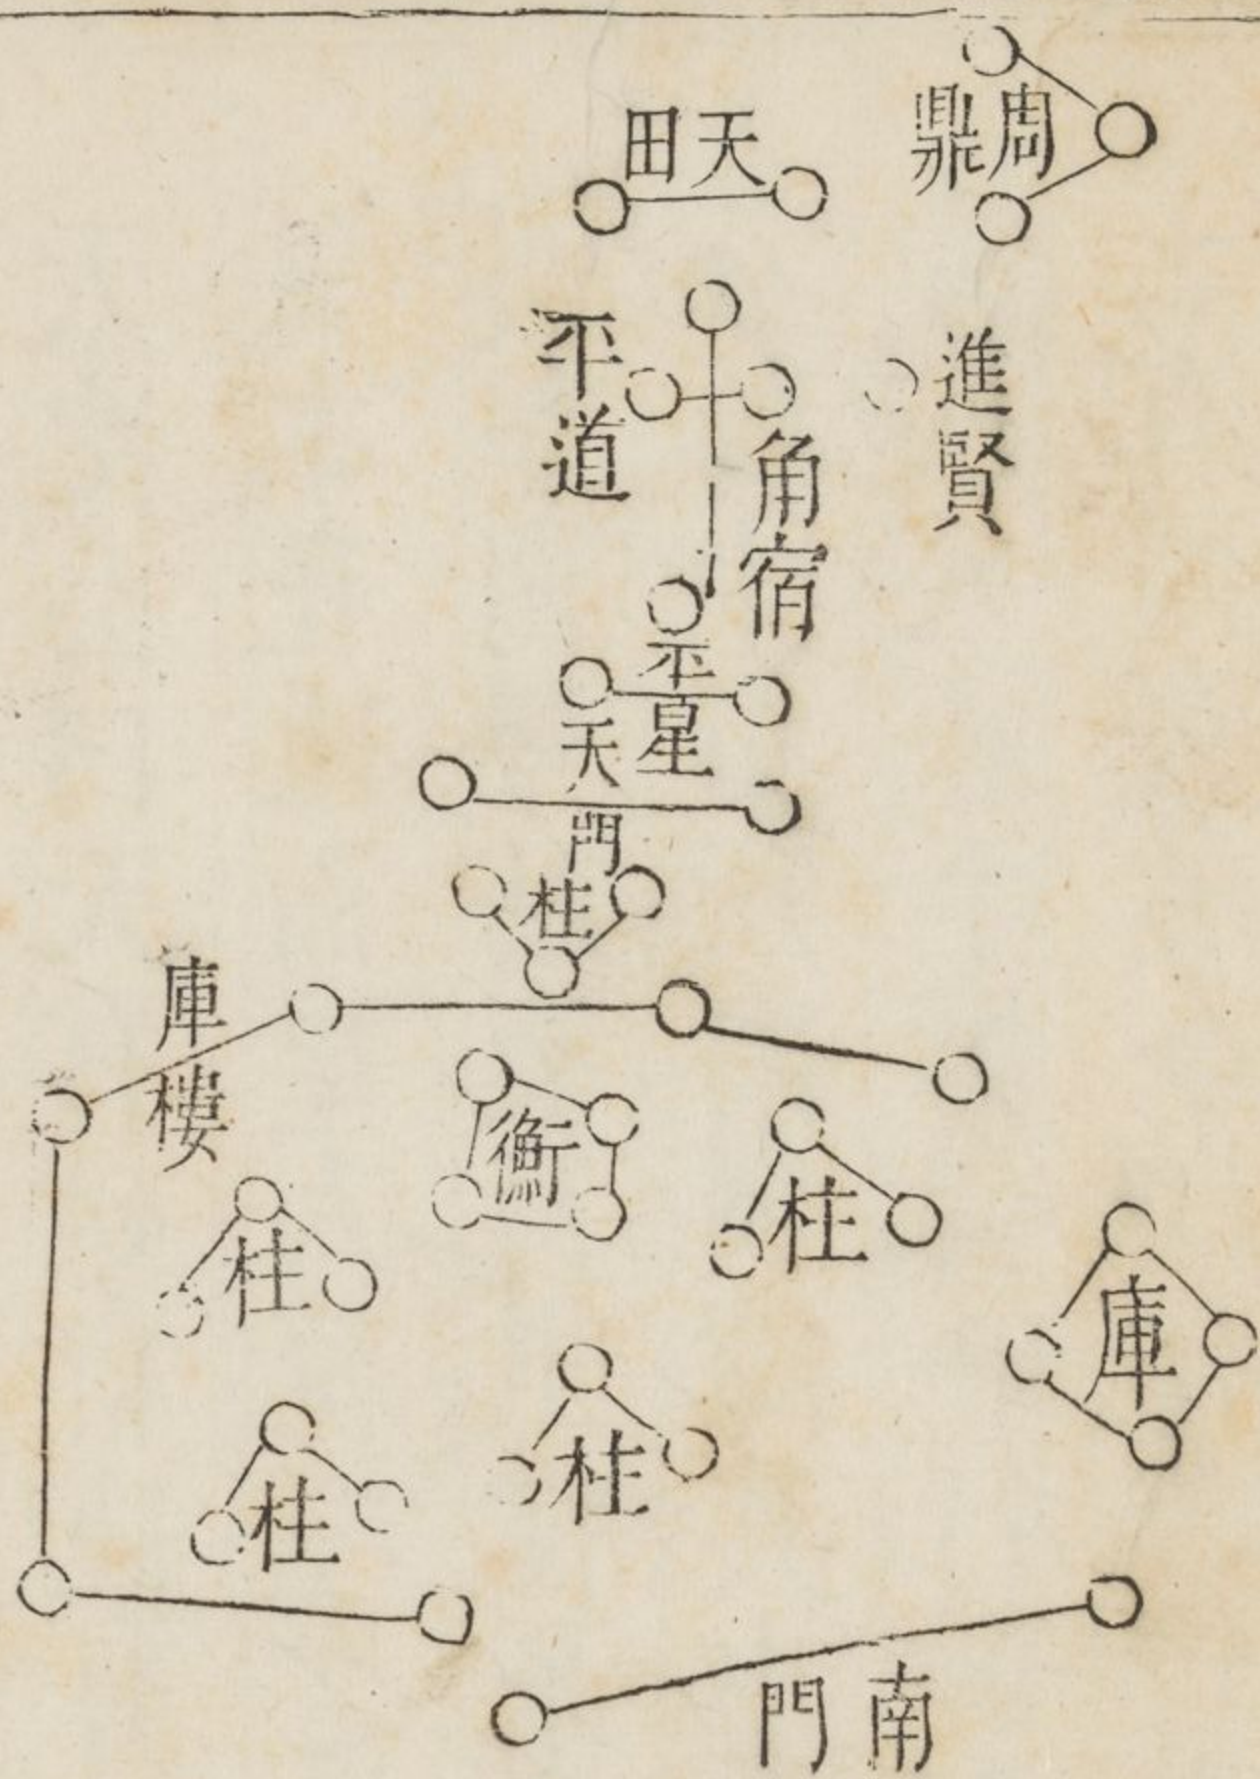 周鼎
天田
進賢
平道
角宿
平星
天門
柱
庫樓
衡
柱
柱
庫
柱
柱
南門